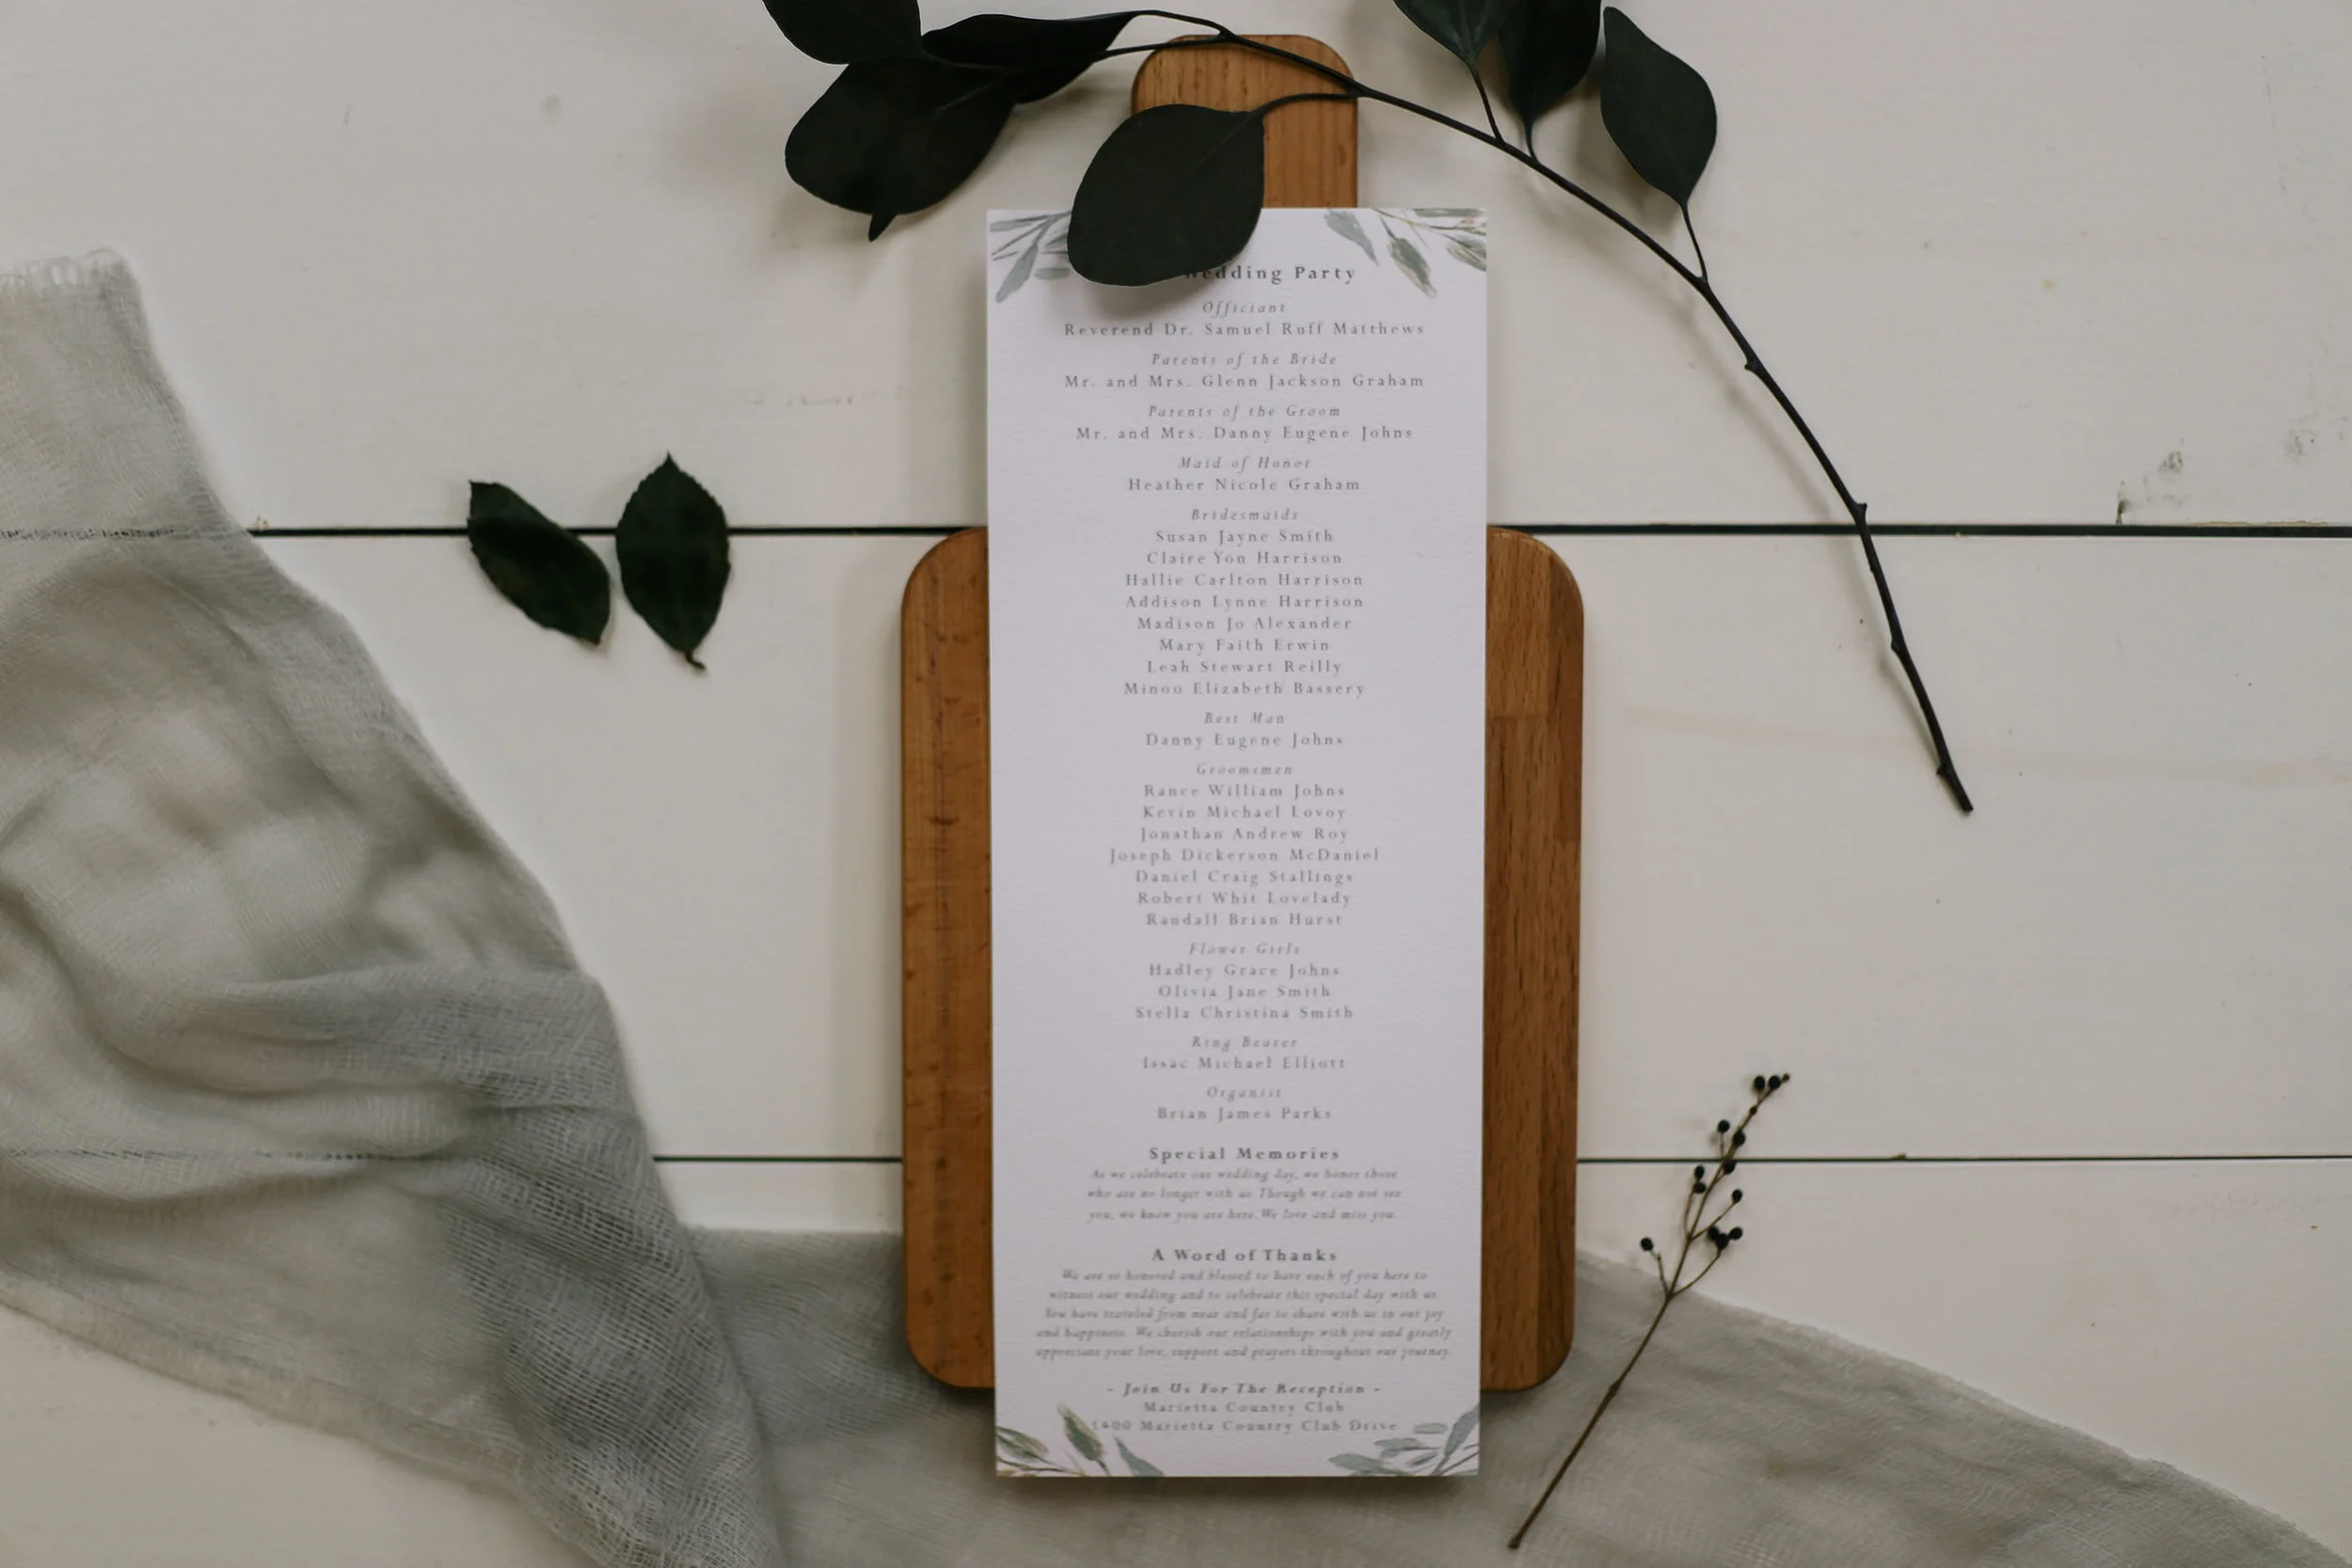 Wedding Party
Officiant
Reverend Dr. Samuel Ruff Matthews
Parents of the Bride
Mr. and Mrs. Glenn Jackson Graham
Parents of the Groom
Mr. and Mrs. Danny Eugene Johns
Maid of Honor
Heather Nicole Graham
Bridesmaids
Susan Jayne Smith
Claire Yon Harrison
Hallie Carlton Harrison
Addison Lynne Harrison
Madison Jo Alexander
Mary Faith Erwin
Leah Stewart Reilly
Minoo Elizabeth Bassery
Best Man
Danny Eugene Johns
Groomsmen
Rance William Johns
Kevin Michael Lovoy
Jonathan Andrew Roy
Joseph Dickerson McDaniel
Daniel Craig Stallings
Robert Whit Lovelady
Randall Brian Hurst
Flower Girls
Hadley Grace Johns
Olivia Jane Smith
Stella Christina Smith
Ring Bearer
Issac Michael Elliott
Organist
Brian James Parks
Special Memories
As we celebrate our wedding day, we honor those
who are no longer with us. Though we can not see
you, we know you are here. We love and miss you.
A Word of Thanks
We are so honored and blessed to have each of you here to
witness our wedding and to celebrate this special day with us.
You have traveled from near and far to share with us in our joy
and happiness. We cherish our relationships with you and greatly
appreciate your love, support and prayers throughout our journey.
- Join Us For The Reception -
Marietta Country Club
1400 Marietta Country Club Drive